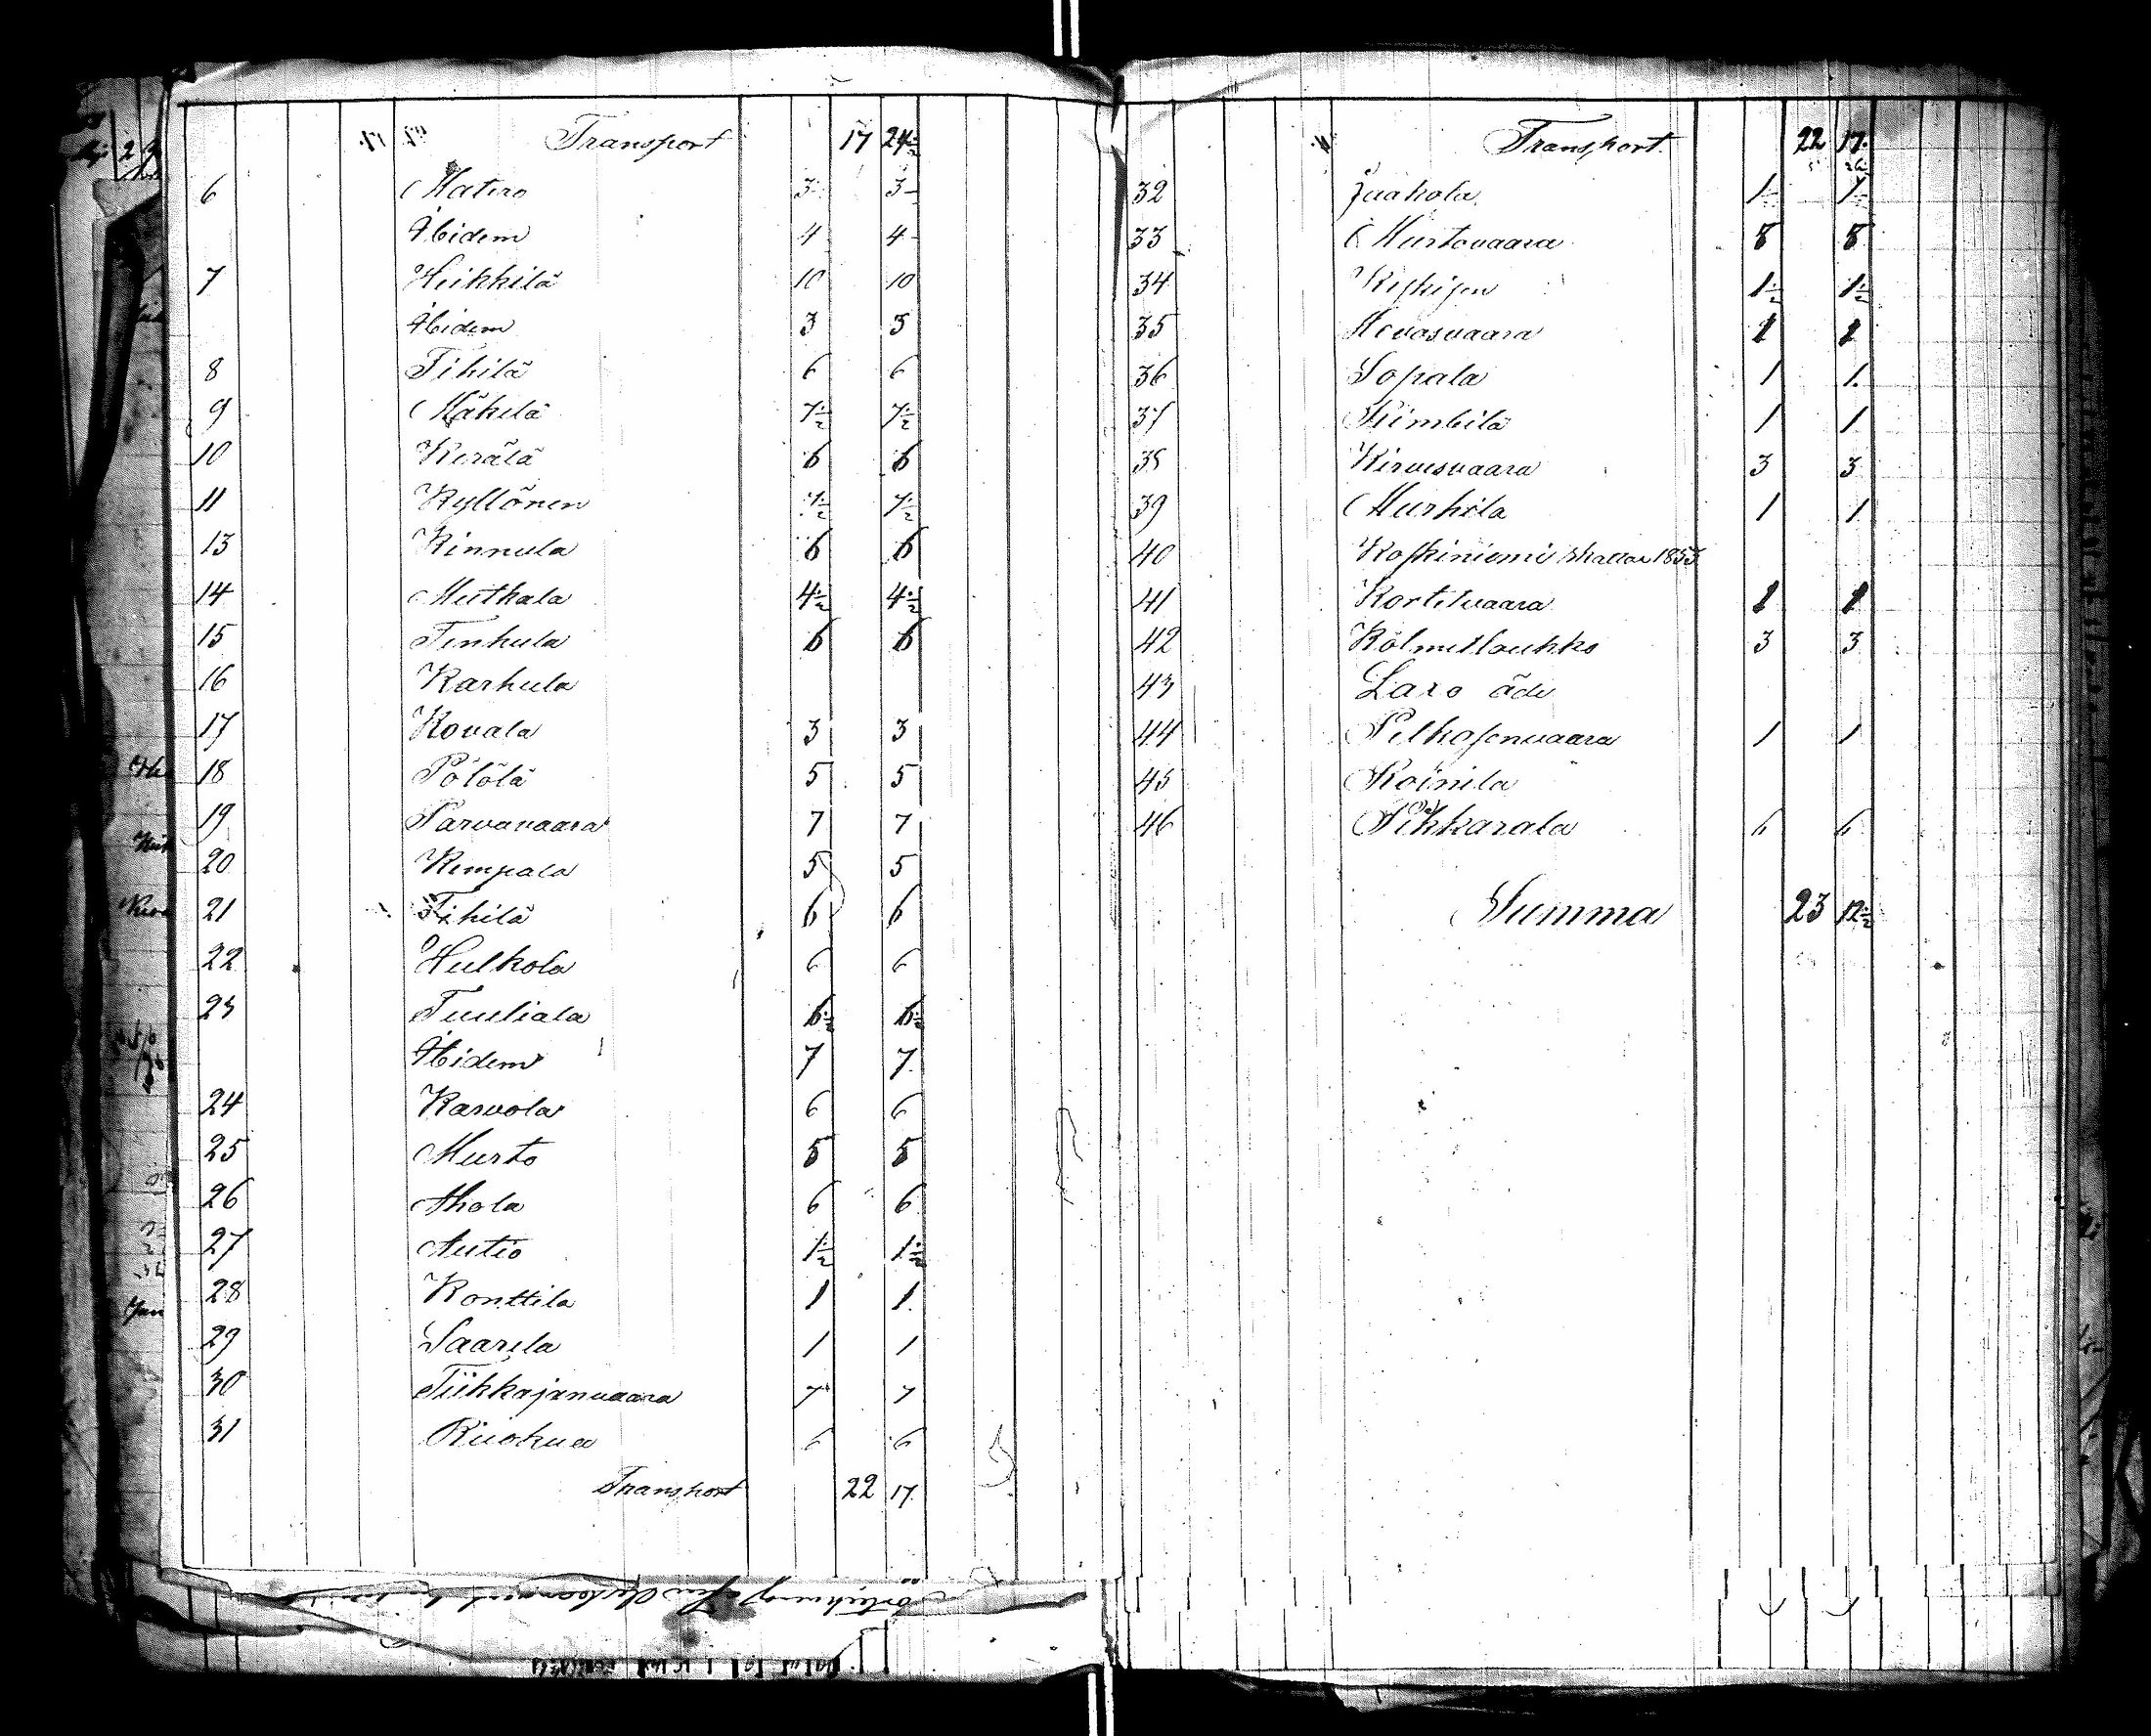 Transport 17 24½
6 Matero 3 3
Ibidem 4 4
7 Heikkilä 10 10
Ibidem 3 3
8 Tihilä 6 6
9 Mäkelä 7½ 7½
10 Kerälä 6 6
11 Kyllönen 7½ 7½
13 Kinnula 6 6
14 Muthala 4½ 4½
15 Tenhula 6 6
16 Karhula
17 Kovala 3 3
18 Pölölä 5 5
19 Parvavaara 7 7
20 Kempala 5 5
21 Tihilä 6 6
22 Hulkola 6 6
23 Tuuliala 6½ 6½
Ibidem 7 7
24 Karvola 6 6
25 Murto 5 5
26 Ahola 6 6
27 Autio 1½ 1½
28 Konttila 1 1
29 Saarela 1 1
30 Tiikkajanvaara 7 7
31 Riiokua 6 6
Transport 22 17
Transport 22 17
32 Jaakola 1 1
33 Murtovaara 8 8
34 1½ 1½
35 Hovasvaara 1 1
36 Sopala 1 1
37 Kimbilä 1 1
38 Kirvesvaara 3 3
39 Murhila 1 1
40 Koskiniemi skattar 1853
41 Kortetvaara 1 1
42 Kolmetloukko 3 3
43 Laxo öde
44 Pelkosenvaara 1 1
45 Roinila
46 Pikkarala 6 6
Summa 23 12½